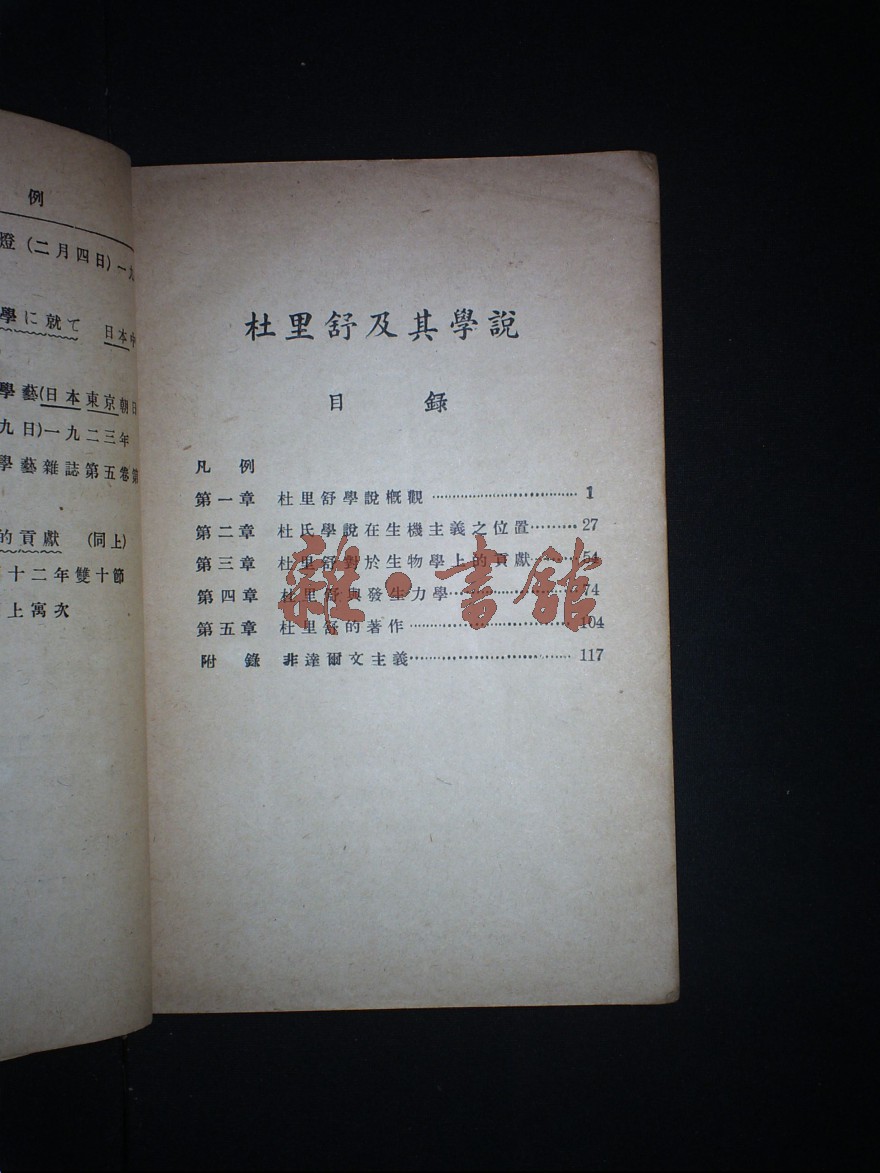 例
燈(二月四日)一九
學に就て 日本中
學藝(日本東京朝日
九日)一九二三年
學藝雜誌第五卷第
的貢獻 (同上)
十二年雙十節
上寓次
杜里舒及其學說
目 錄
凡 例
第一章 杜里舒學說概觀 1
第二章 杜氏學說在生機主義之位置 27
第三章 杜里舒對於生物學上的貢獻 54
第四章 杜里舒與發生力學 74
第五章 杜里舒的著作 104
附 錄 非達爾文主義 117
雜·書館